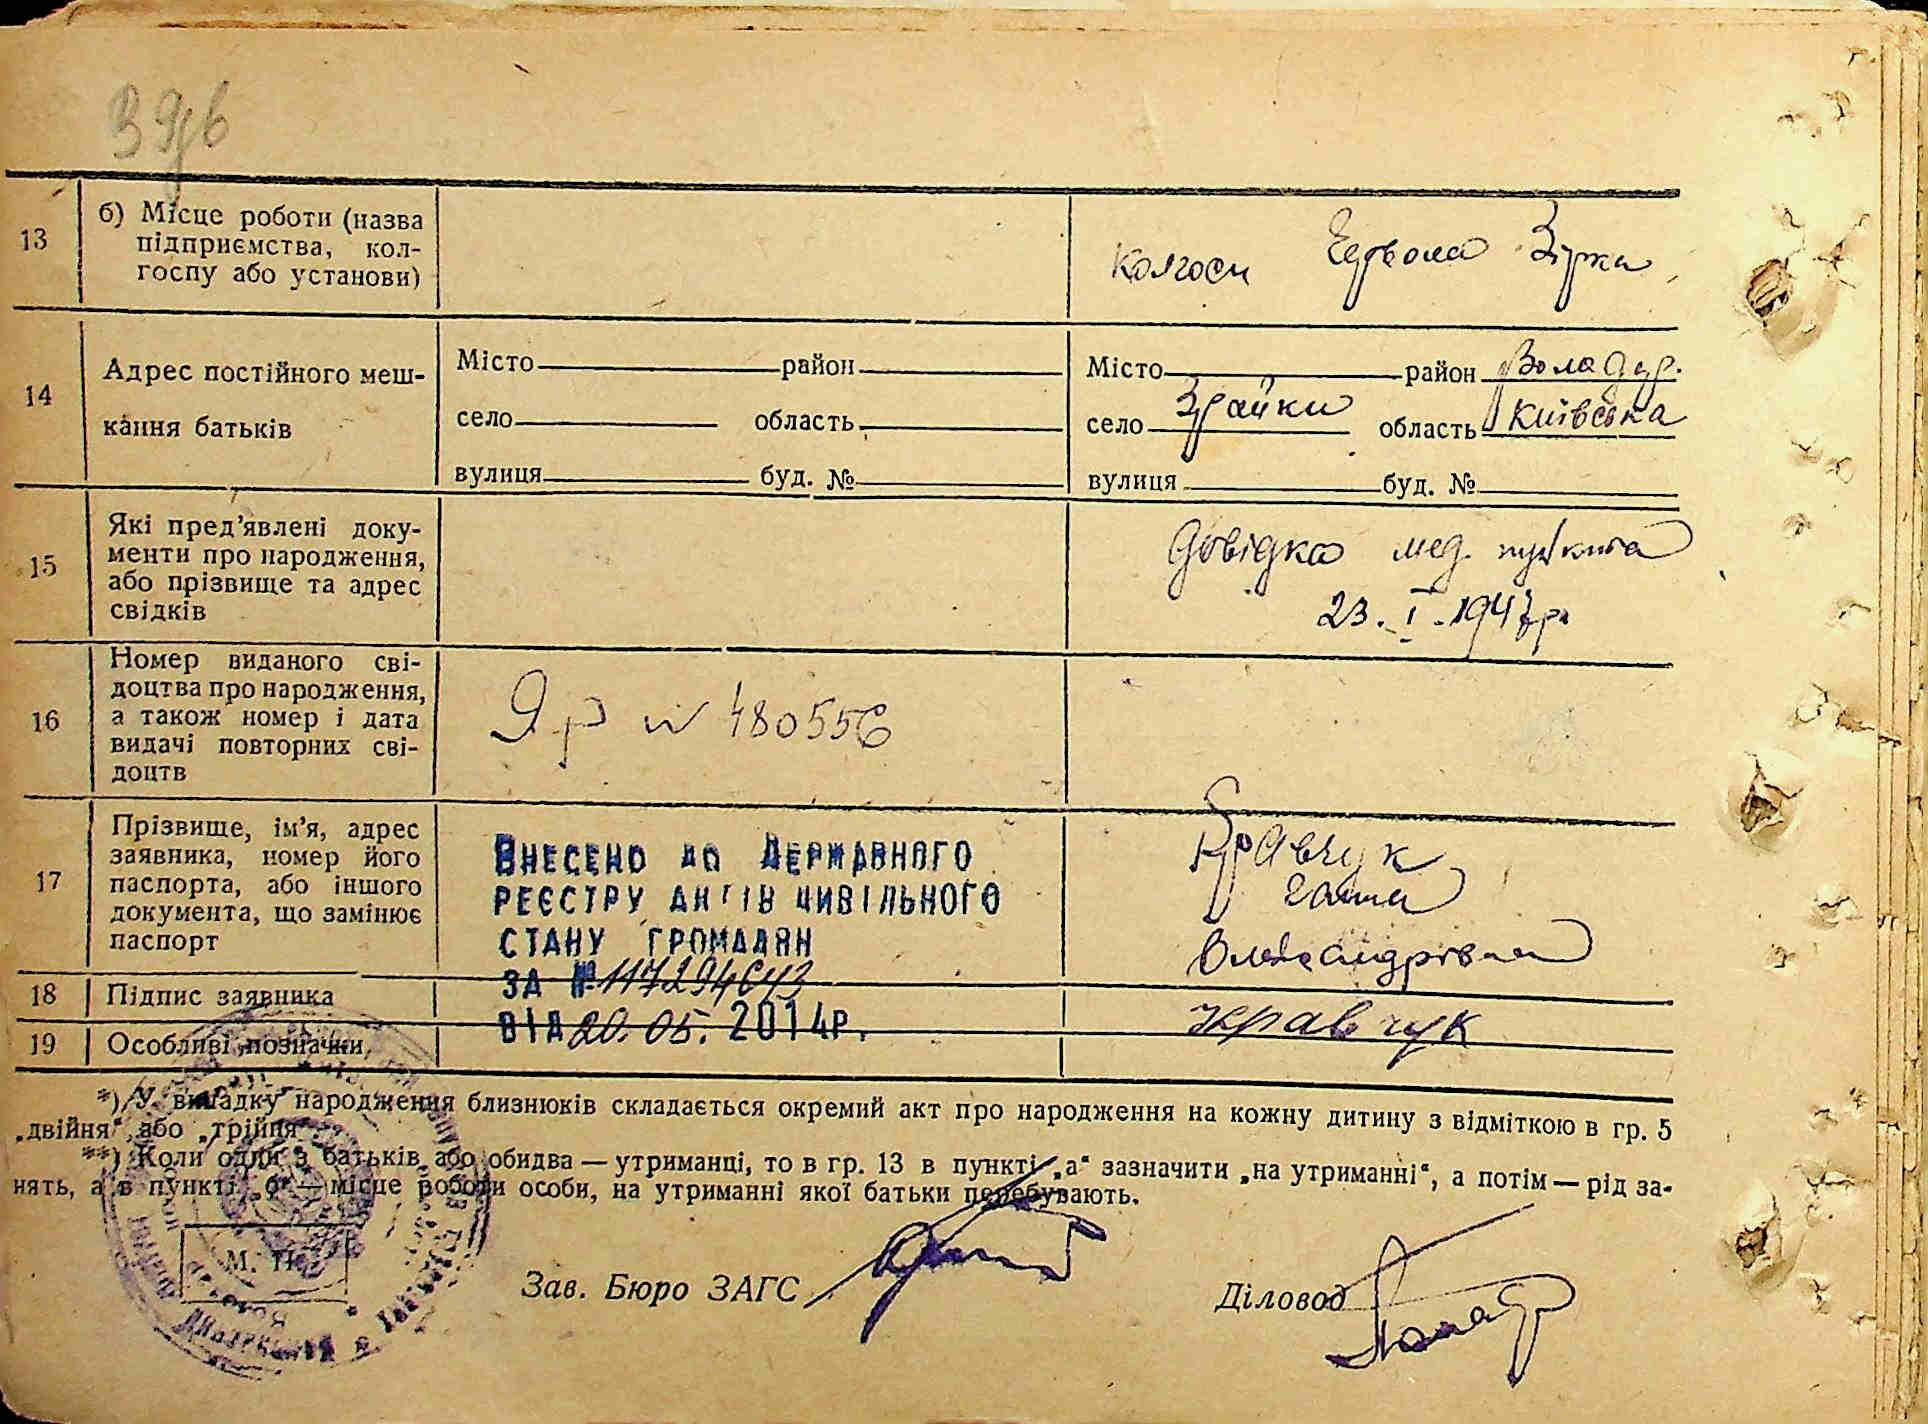 13
б) Місце роботи (назва
підприємства, кол-
госпу або установи)
колгосп Червона Зірка
14
Адрес постійного меш-
кання батьків
Місто район
село область
вулиця буд. №
Місто район Володар.
село Зрайки область Київська
вулиця буд. №
15
Які пред'явлені доку-
менти про народження,
або прізвище та адрес
свідків
Довідка мед. пункта
23. I. 1947р
16
Номер виданого сві-
доцтва про народження,
а також номер і дата
видачі повторних сві-
доцтв
Яр № 480556
17
Прізвище, ім'я, адрес
заявника, номер його
паспорта, або іншого
документа, що замінює
паспорт
Внесено до Державного
реєстру актів цивільного
стану громадян
за № 117294643
від 20.05. 2014р.
Кравчук
Ганна
Олександрівна
18
Підпис заявника
Кравчук
19
Особливі позначки
*) У випадку народження близнюків складається окремий акт про народження на кожну дитину з відміткою в гр. 5
„двійня“, або „трійня“
**) Коли один з батьків або обидва — утриманці, то в гр. 13 в пункті „а“ зазначити „на утриманні“, а потім — рід за-
нять, а в пункті „б“ — місце роботи особи, на утриманні якої батьки перебувають.
М. П.
Зав. Бюро ЗАГС
Діловод